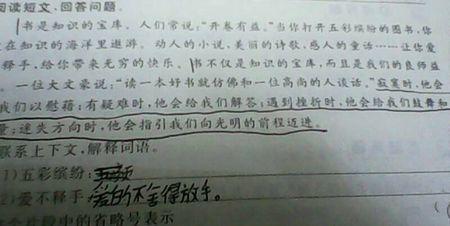 阅读短文,回答问题。
书是知识的宝库。人们常说:“开卷有益。”当你打开五彩缤纷的图书,你
在知识的海洋里遨游。动人的小说,美丽的诗歌,感人的童话……让你爱
释手,给你带来无穷的快乐。书不仅是知识的宝库,而且是我们的良师益
。一位大文豪说:“读一本好书就仿佛和一位高尚的人谈话。”寂寞时,他会
我们以慰藉;有疑难时,他会给我们解答;遇到挫折时,他会给我们鼓舞和
量;迷失方向时,他会指引我们向光明的前程迈进。
联系上下文,解释词语。
1)五彩缤纷:
2)爱不释手:爱的不舍得放手。
个片段中的省略号表示